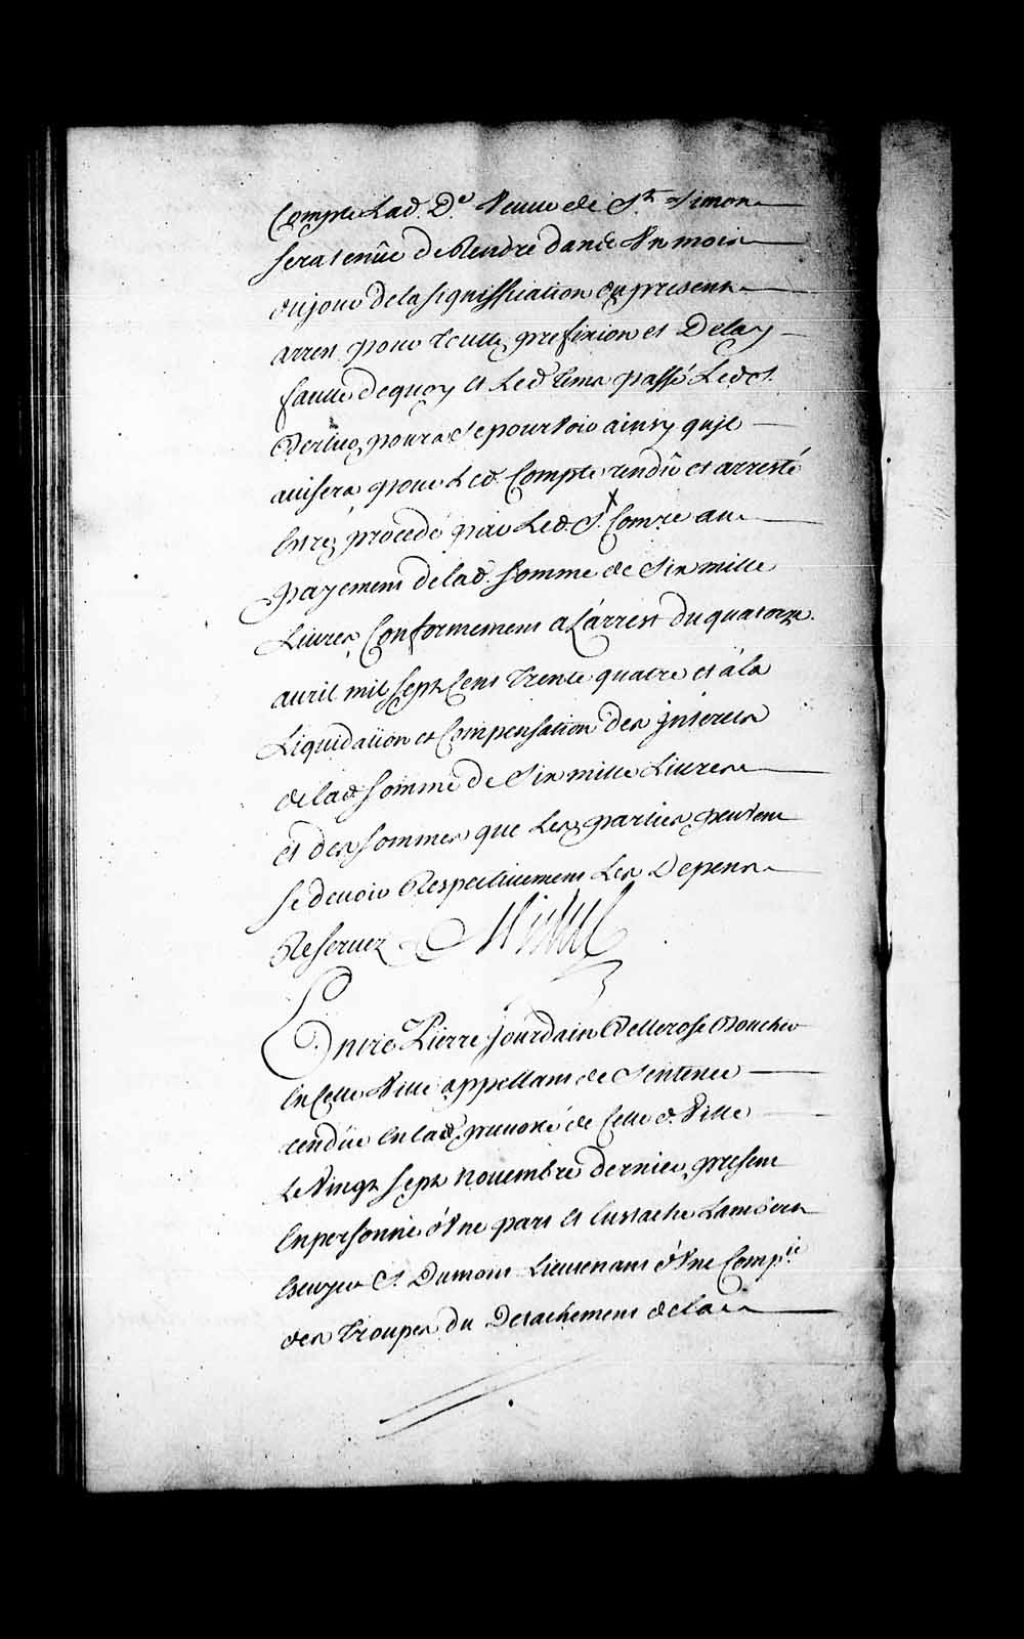 Compte Lad. D.e Veuve de St. Simon
sera tenüe de Rendre dans Un mois
du jour de la signiffication du present
arrest pour toutte prefixion et Delay
faute dequoy et Led. tems passé Led. S.
pourra se pourvoir ainsy qu'jl
avisera pour Led. Compte rendû et arresté
Estre procedé par Led. S. Comre au
payement de lad. somme de Six mille
Livres Conformement a L'arrest du quatorze
avril mil sept Cent trente quatre et à la
Liquidation et Compensation des jnterests
de lad. somme de Six mille Livres
et des sommes que Les parties peuvent
se devoir Respectivement Les Depens
Reservez
Entre Pierre Jourdain Bellerose Boucher
En Cette Ville appellant de Sentence
rendüe en la prevoté de Cette d. Ville
Le Vingt sept novembre dernier present
En personne d'Une part et Eustache Lambert
Ecuyer S. Dumont Lieutenant d'Une Comp.ie
des troupes du Detachement de la